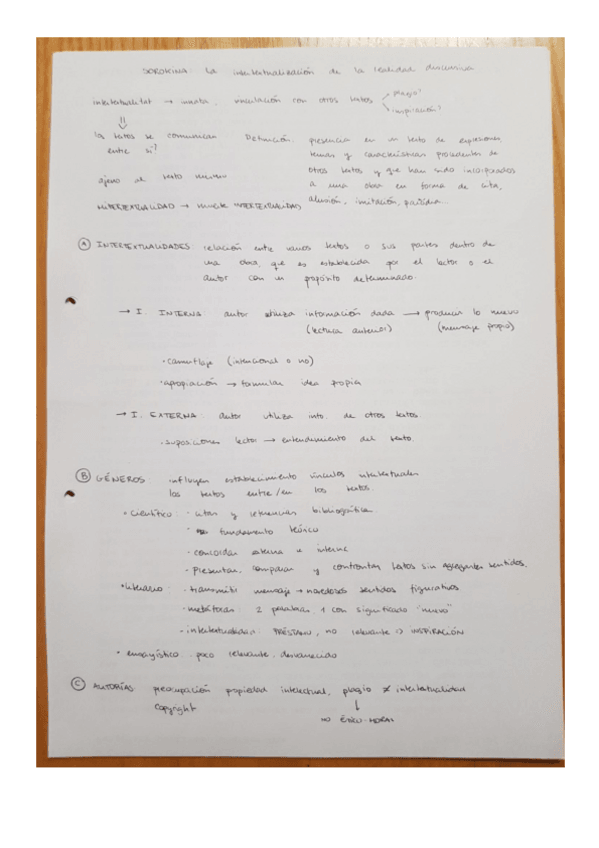 SOROKINA: La intertextualización de la realidad discursiva
intertextualitat → innata, vinculación con otros textos → plagio?
→ inspiración?
los textos se comunican entre sí?
ajeno al texto mismo
HIPERTEXTUALIDAD → muestra INTERTEXTUALIDAD
Definición: presencia en un texto de expresiones,
temas y características procedentes de
otros textos y que han sido incorporados
a una obra en forma de cita,
alusión, imitación, parodia...
Ⓐ INTERTEXTUALIDADES: relación entre varios textos o sus partes dentro de
una obra, que es establecida por el lector o el
autor con un propósito determinado.
→ I. INTERNA: autor utiliza información dada → producir lo nuevo
(lectura anterior) (mensaje propio)
· camuflaje (intencional o no)
· apropiación → formular idea propia
→ I. EXTERNA: autor utiliza info. de otros textos.
· suposiciones lector → entendimiento del texto.
Ⓑ GÉNEROS: influyen establecimiento vínculos intertextuales
los textos entre/en los textos.
• Científico: · citas y referencias bibliográficas
· fundamento teórico
· concordar externa e interna
· presentar, comparar y confrontar textos sin agregarles sentidos.
• literario: · transmitir mensaje → novedosos sentidos figurativos
· metáforas: 2 palabras 1 con significado "nuevo"
· intertextualidad: PRÉSTAMO, no relevante INSPIRACIÓN
• ensayístico: poco relevante, desvanecido
Ⓒ AUTORÍAS: preocupación propiedad intelectual, plagio ≠ intertextualidad
Copyright ↓
NO ÉTICO-MORAL